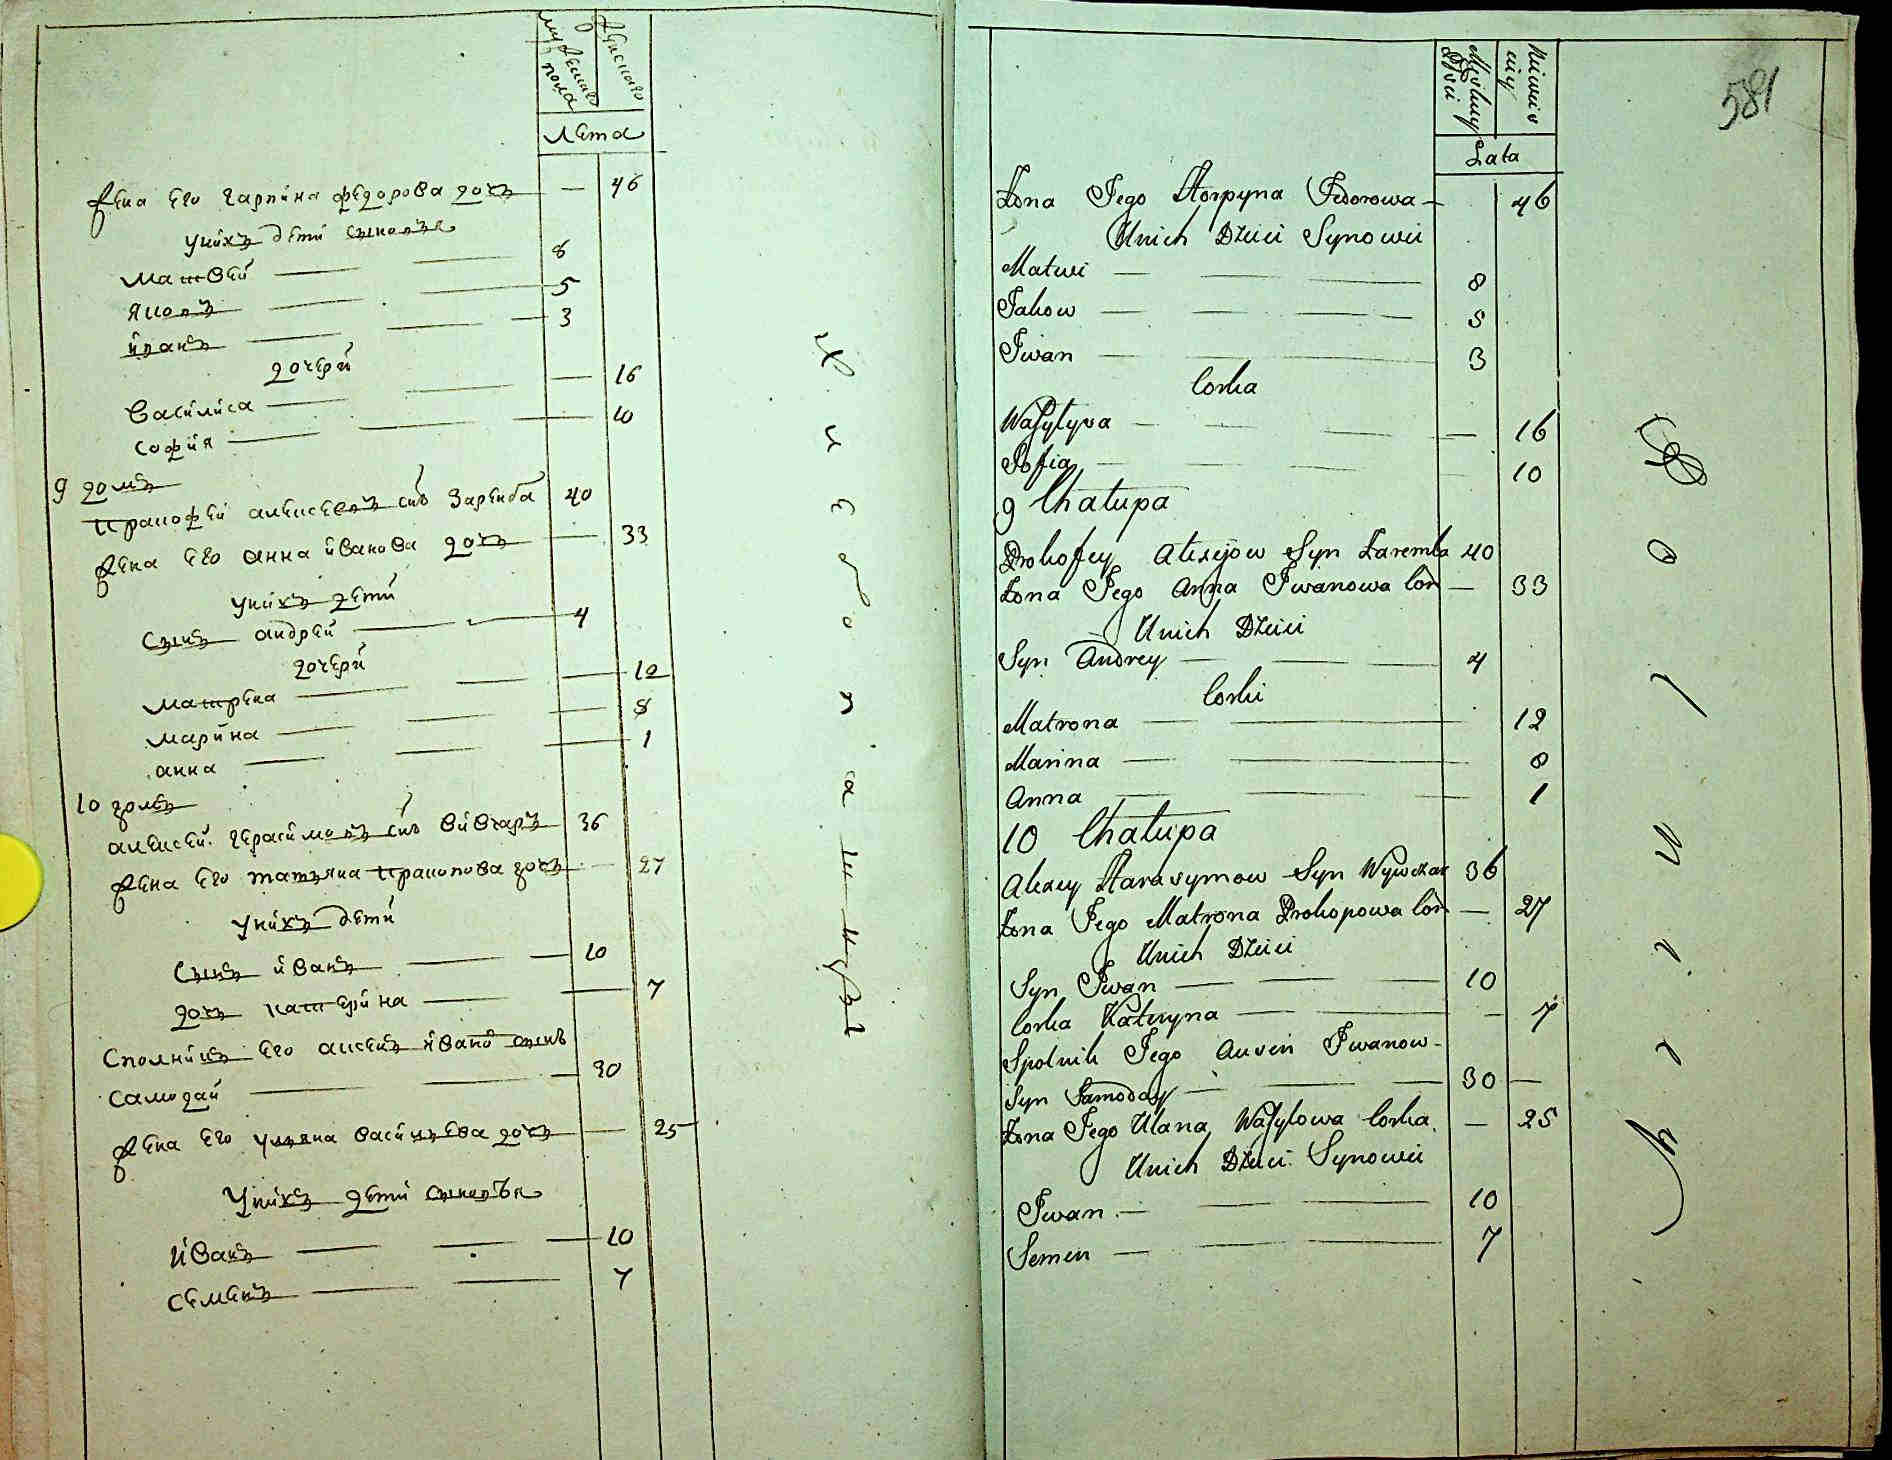 мужеска пола
женскаго
лета
жена его гарпина федорова дочь — 46
у нихъ дети сыновья
матвей — 8
яковъ — 5
иванъ — 3
дочери
василиса — 16
софия — 10
9 домъ
пракофей алексеевъ снъ Заремба 40
жена его анна иванова дочь — 33
у нихъ дети
сынъ андрей — 4
дочери
матрена — 12
марина — 8
анна — 1
10 домъ
алексей герасимовъ снъ вивчаръ 36
жена его татьяна пракопова дочь — 27
у нихъ дети
сынъ иванъ — 10
дочь катерина — 7
Сполникъ его авсей ивановъ сынъ
Самодай — 30
жена его ульяна васильева дочь — 25
у нихъ дети сыновья
иванъ — 10
семенъ — 7
581
Męskiey Płci
Lata
Żona Jego Horpyna Fedorowa — 46
U nich Dzieci Synowie
Matwi — 8
Jakow — 5
Jwan — 3
Corka
Wasylysa — 16
Sofia — 10
9 Chatupa
Prokofey Alexijow Syn Zaremba 40
Żona Jego Anna Jwanowa Cor — 33
U nich Dzieci
Syn Andrey — 4
Corki
Matrona — 12
Marina — 8
Anna — 1
10 Chatupa
Alexey Harasymow Syn Wywczar 36
Żona Jego Matrona Prokopowa Cor — 27
U nich Dzieci
Syn Jwan — 10
Corka Kateryna — 7
Spolnik Jego Auxen Jwanow
Syn Samoday — 30 —
Żona Jego Ulana Wasylowa Corka — 25
U nich Dzieci Synowie
Jwan — 10
Semen — 7